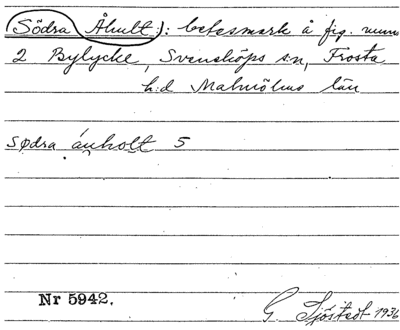 (Södra Åhult:): betesmark å fig. num
2 Bylycke, Svensköps sn, Frosta
h:d Malmöhus län
Södra ánholt 5
Nr 5942.
G. Sjöstedt 1936